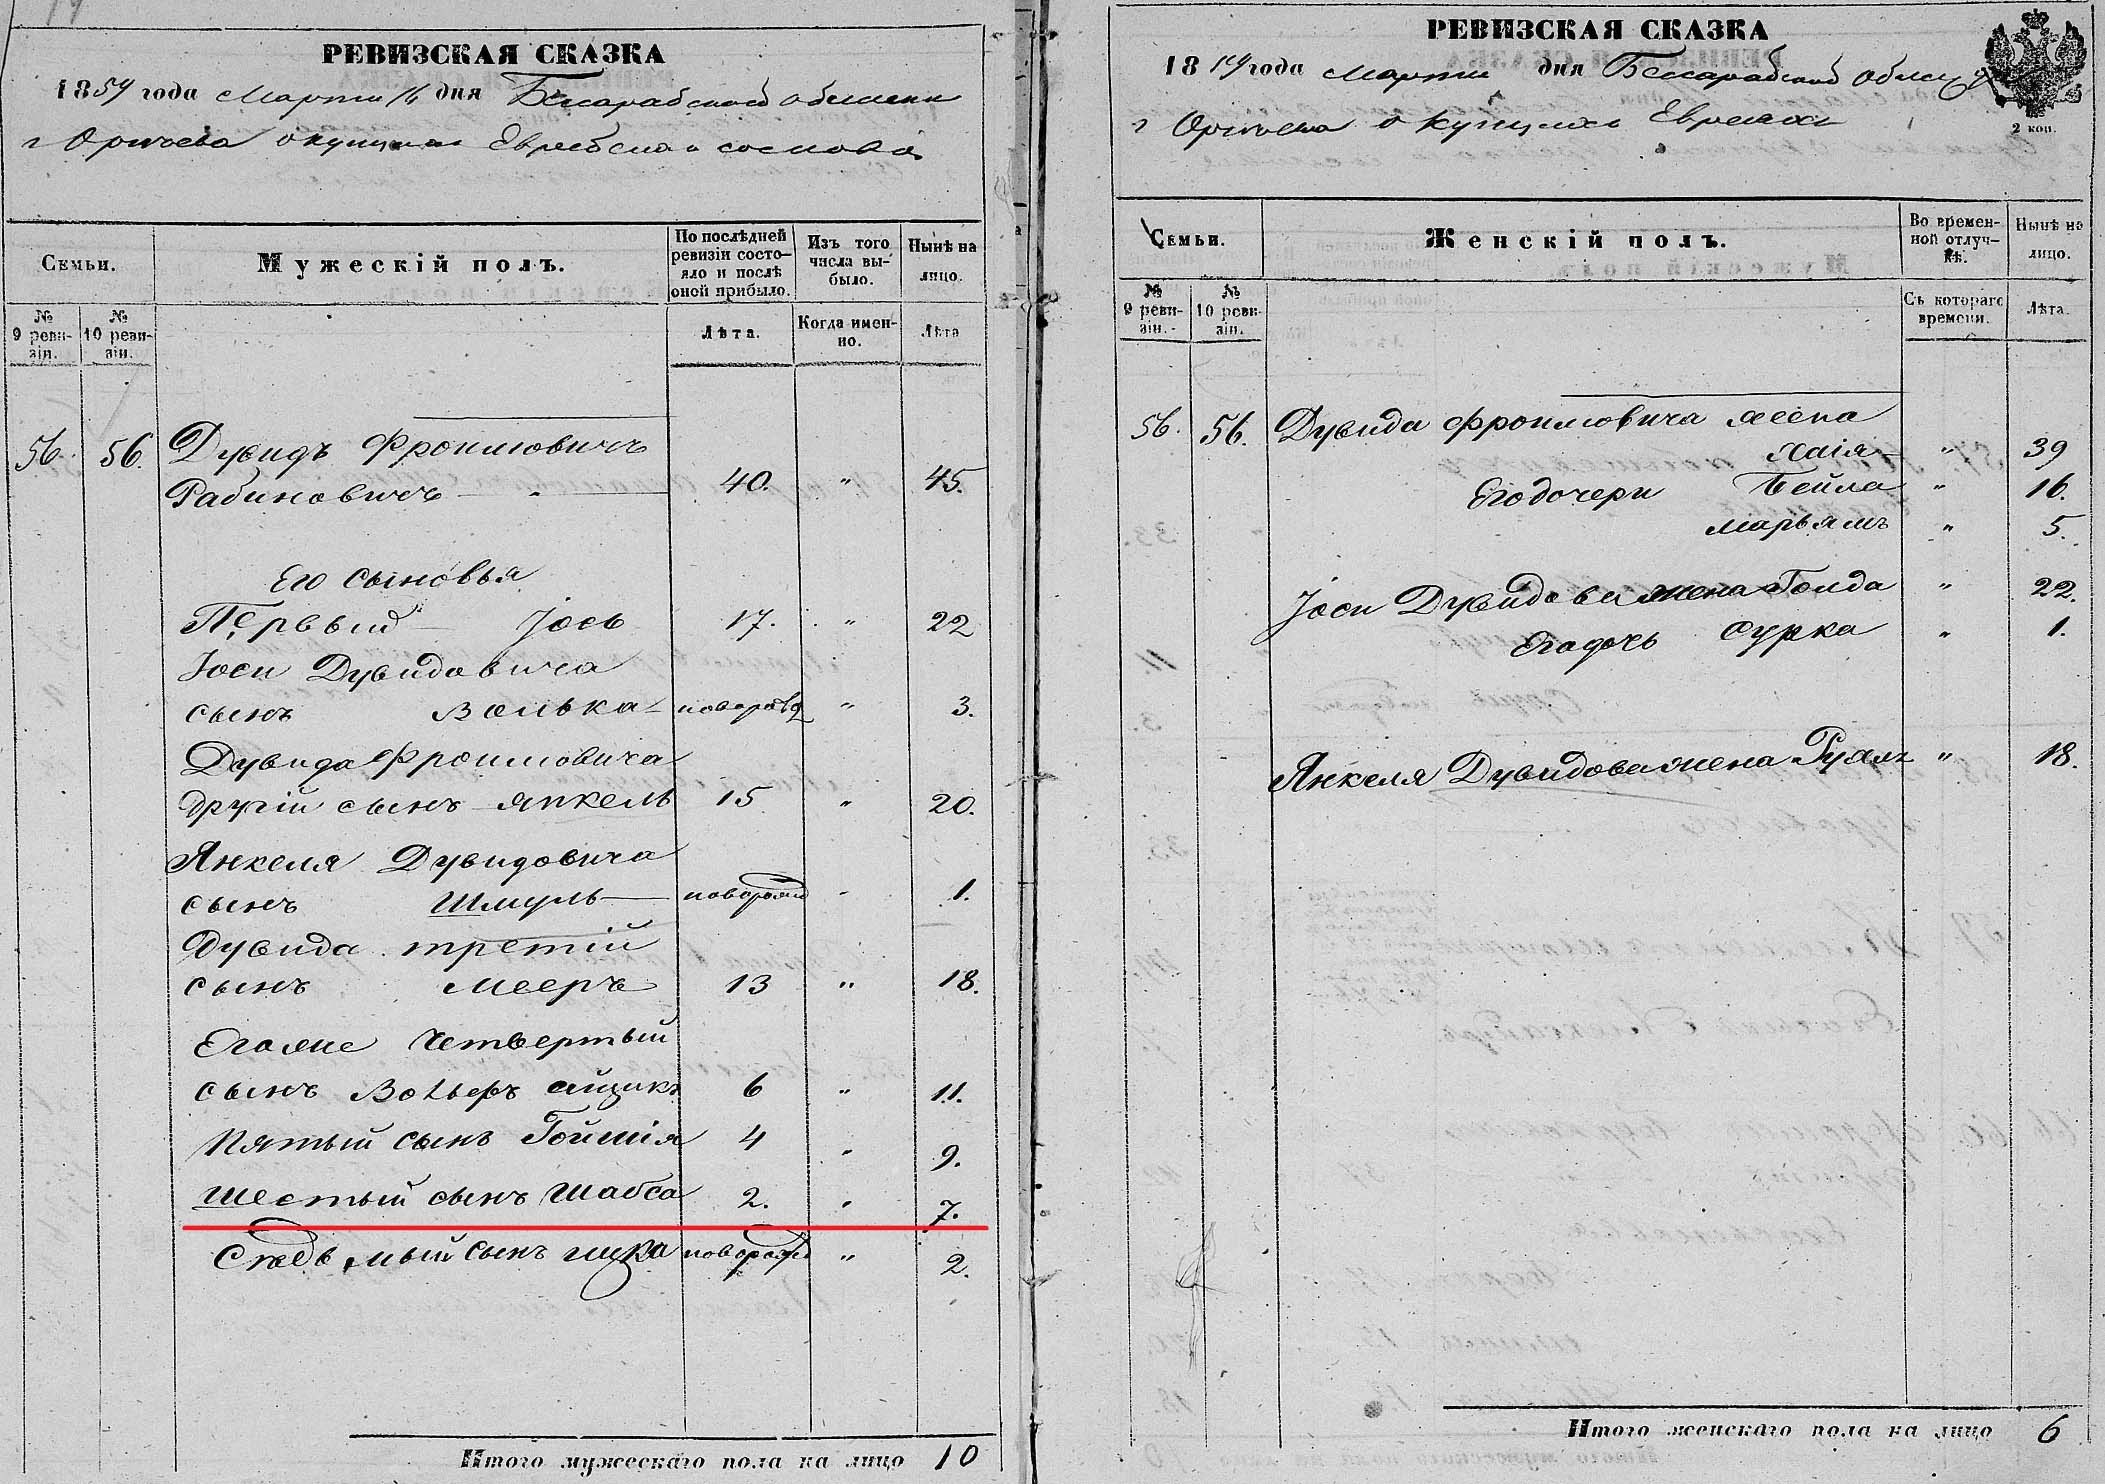 РЕВИЗСКАЯ СКАЗКА
1859 года Марта 16 дня Бессарабской области
г Оргеева о купцах Еврейскаго сословія
Семьи.
Мужескій полъ.
По послѣдней ревизіи состояло и послѣ оной прибыло.
Изъ того числа выбыло.
Нынѣ на лицо.
№ 9 ревизіи.
№ 10 ревизіи.
Лѣта.
Когда именно.
Лѣта
56. 56. Дувидъ Фроимовичъ
Рабиновичъ 40. " 45.
Его сыновья
Первый Іось 17. " 22
Іоси Дувидовича
сынъ Волька новорожд " 3.
Дувида Фроимовича
другій сынъ Янкель 15 " 20.
Янкеля Дувидовича
сынъ Шмуль новорожд " 1.
Дувида третій
сынъ Мееръ 13 " 18.
Егоже Четвертый
сынъ Вольеръ Айзикъ 6 " 11.
Пятый сынъ Гойшія 4 " 9.
Шестый сынъ Шабса 2. " 7.
Сѣдьмый сынъ новорожд " 2.
Итого мужескаго пола на лицо 10
РЕВИЗСКАЯ СКАЗКА
1859 года Марта дня Бессарабской области
г Оргеева о купцахъ Евреяхъ
2 коп.
Семьи.
Женскій полъ.
Во временной отлучкѣ.
Нынѣ на лицо.
№ 9 ревизіи.
№ 10 ревизіи.
Съ котораго времени.
Лѣта.
56. 56. Дувида Фроимовича жена
Хаія " 39
Его дочери Бейла " 16.
Марьямъ " 5.
Іоси Дувидова жена Голда " 22.
Его дочь Сурка " 1.
Янкеля Дувидова жена Рухля " 18.
Итого женскаго пола на лицо 6